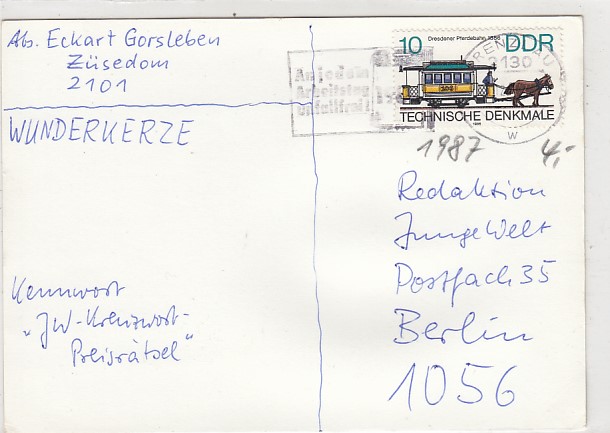 Abs. Eckart Gorsleben
Züsedom
2101
WUNDERKERZE
Kennwort
„JW-Kreuzwort-
Preisrätsel"
An jedem
Arbeitstag
unfallfrei!
10 Dresdener Pferdebahn 1886 DDR
TECHNISCHE DENKMALE
1986
PRENZLAU
2130
w
1987 4,-
Redaktion
Junge Welt
Postfach 35
Berlin
1056